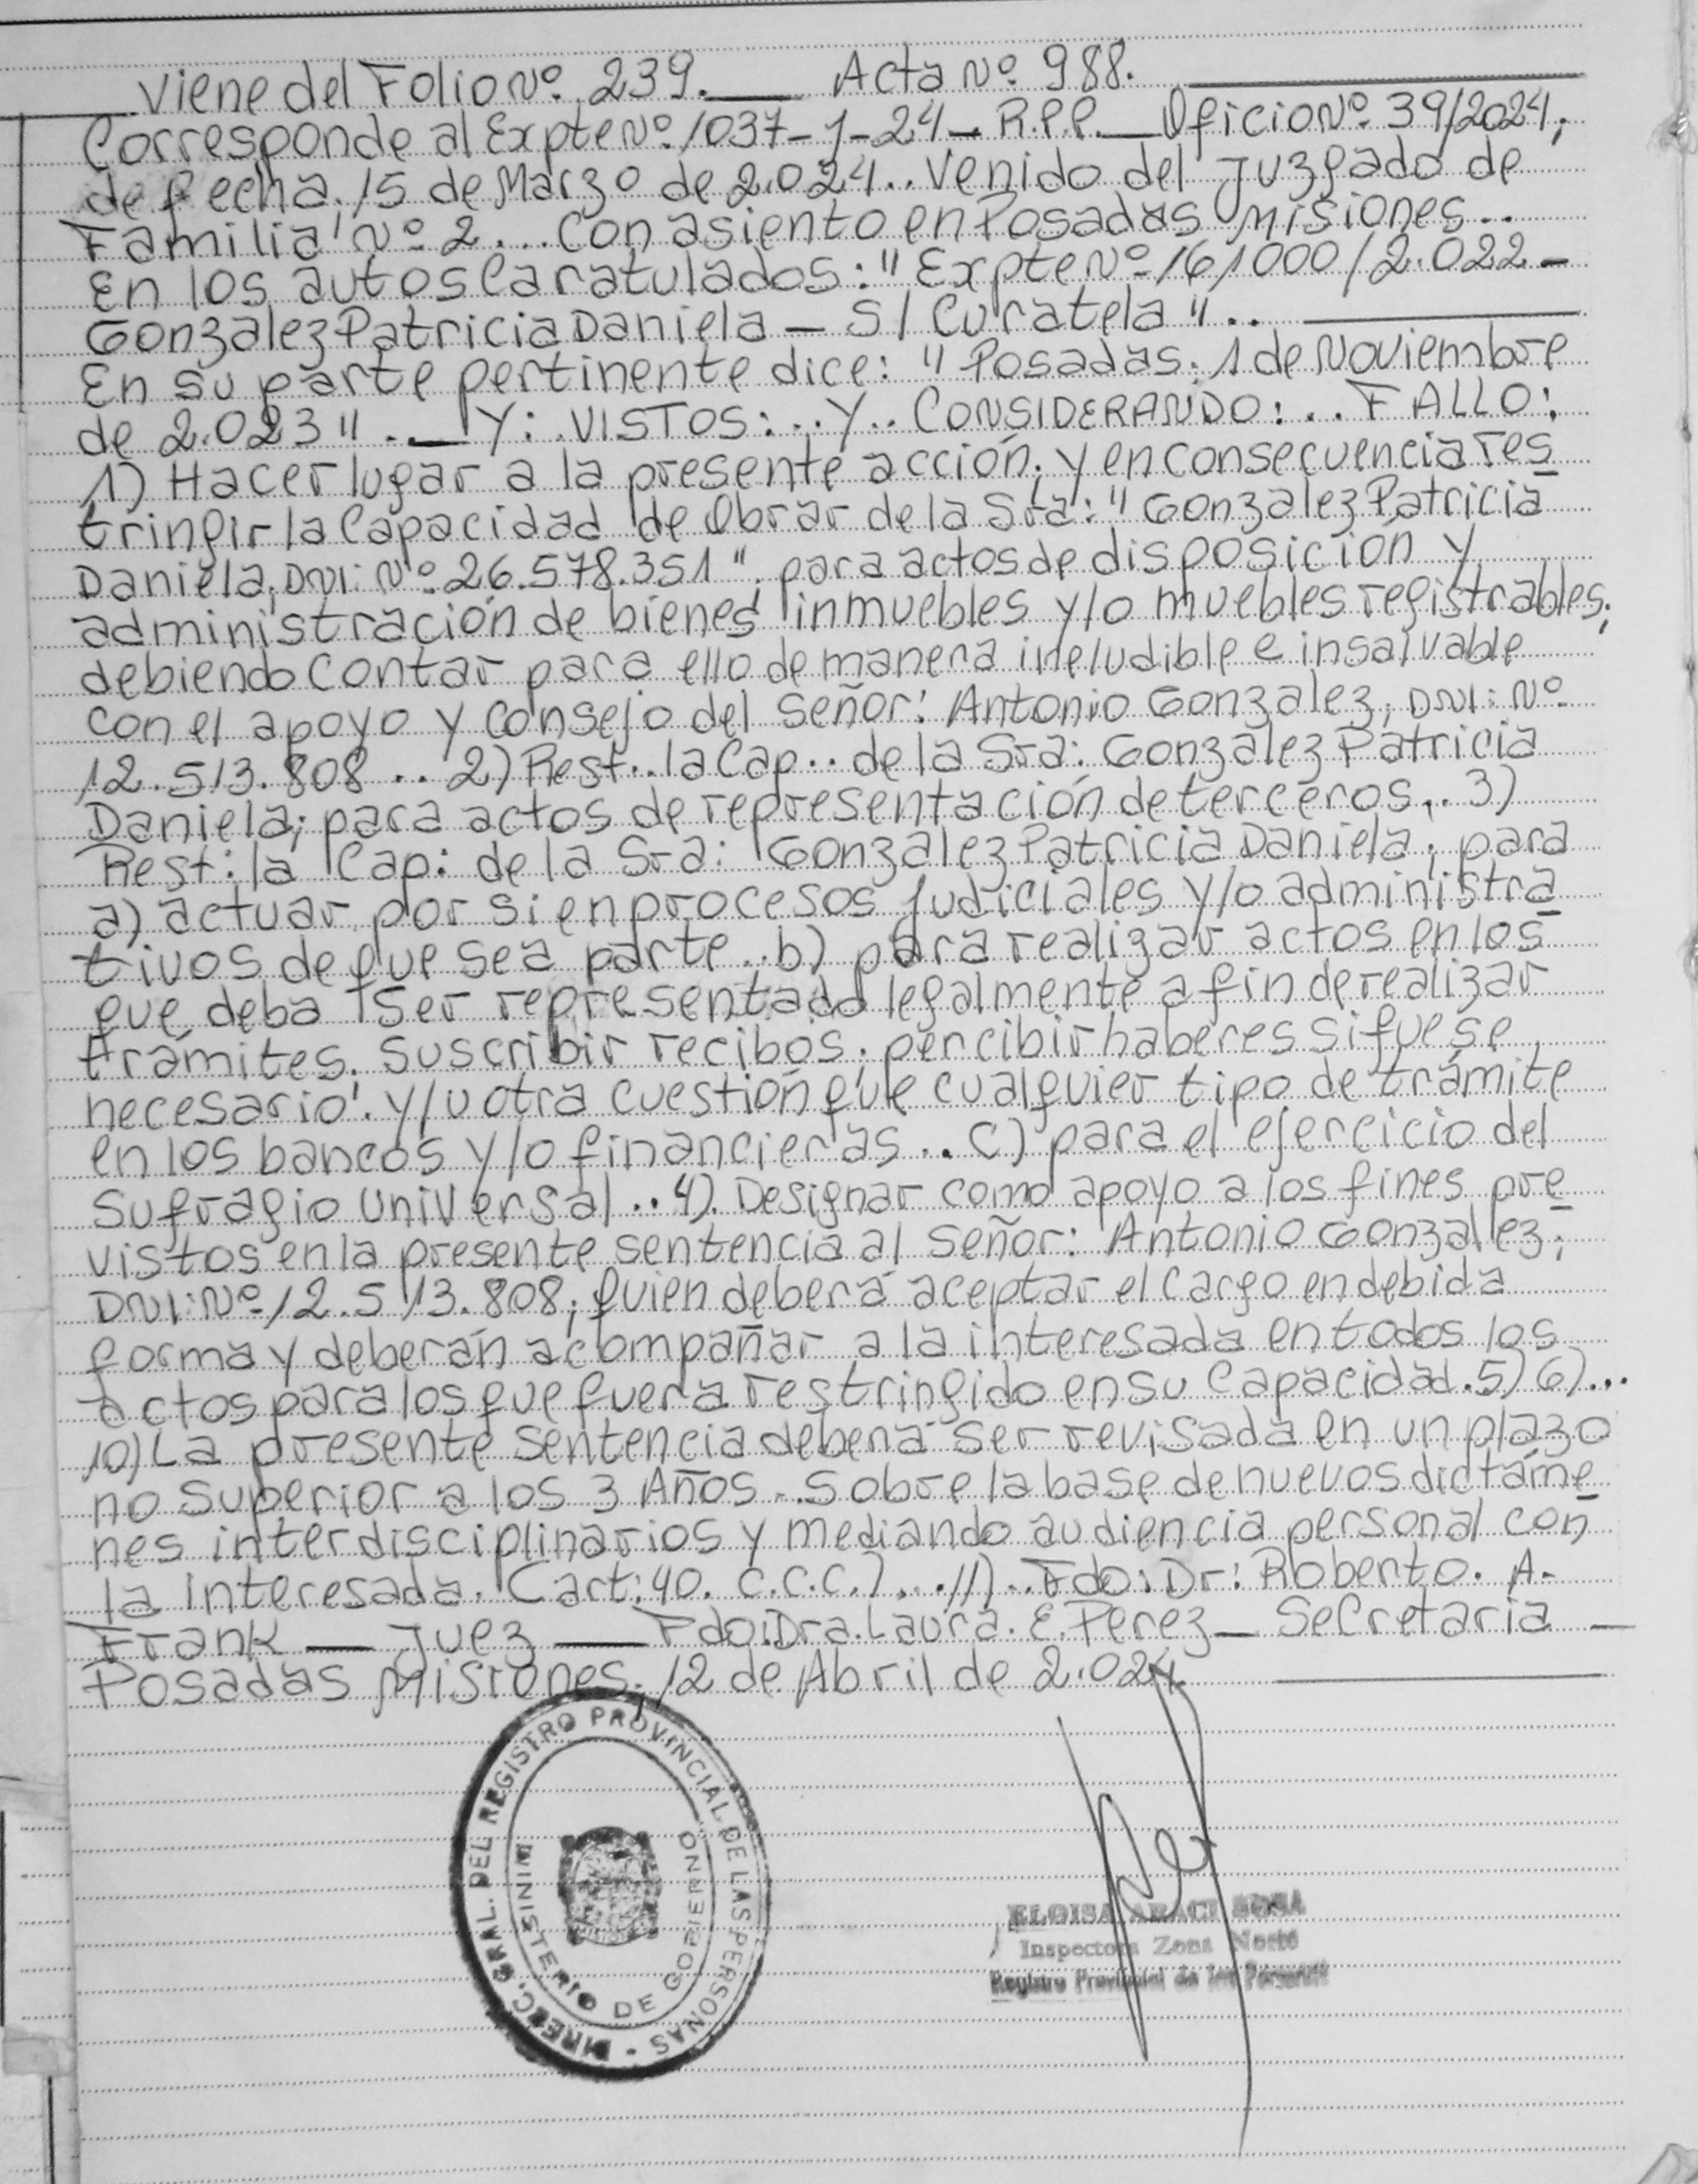 Viene del Folio Nº 239. Acta Nº 988.
Corresponde al Expte Nº 1037-J-24- R.P.P. Oficio Nº 39/2024;
de fecha 15 de Marzo de 2.024.. Venido del Juzgado de
Familia Nº 2... Con asiento en Posadas Misiones..
En los autos Caratulados: "Expte Nº 161000/2.022-
Gonzalez Patricia Daniela - S/ Curatela"..
En su parte pertinente dice: "Posadas. 1 de Noviembre
de 2.023". Y: VISTOS:..Y.. CONSIDERANDO:.. FALLO:
1) Hacer lugar a la presente acción; y en consecuencia res
tringir la Capacidad de Obrar de la Sra: "Gonzalez Patricia
Daniela; DNI: Nº 26.578.351". para actos de disposición y
administración de bienes inmuebles y/o muebles registrables;
debiendo contar para ello de manera ineludible e insalvable
con el apoyo y Consejo del Señor: Antonio Gonzalez; DNI: Nº
12.513.808.. 2) Rest.. la Cap.. de la Sra: Gonzalez Patricia
Daniela; para actos de representación de terceros... 3)
Rest: la Cap: de la Sra: Gonzalez Patricia Daniela; para
a) actuar por si en procesos judiciales y/o administra
tivos de que sea parte.. b) para realizar actos en los
que deba ser representado legalmente a fin de realizar
trámites. suscribir recibos; percibir haberes si fuese
necesario. y/u otra cuestión que cualquier tipo de trámite
en los bancos y/o financieras.. C) para el ejercicio del
Sufragio Universal.. 4). Designar como apoyo a los fines pre
vistos en la presente sentencia al Señor: Antonio Gonzalez;
DNI: Nº 12.513.808; quien deberá aceptar el cargo en debida
forma y deberán acompañar a la interesada en todos los
actos para los que fuera restringido en su Capacidad. 5) 6)...
10) La presente sentencia deberá ser revisada en un plazo
no Superior a los 3 Años. Sobre la base de nuevos dictáme
nes interdisciplinarios y mediando audiencia personal con
la interesada. (art: 40. C.C.C.)... 11).. Fdo: Dr: Roberto. A.
Frank — Juez — Fdo: Dra. Laura. E. Perez - Secretaria -
Posadas Misiones; 12 de Abril de 2.024.
DIREC. GRAL. DEL REGISTRO PROVINCIAL DE LAS PERSONAS -
MINISTERIO DE GOBIERNO
ELOISA ARACI SOSA
Inspectora Zona Norte
Registro Provincial de las Personas